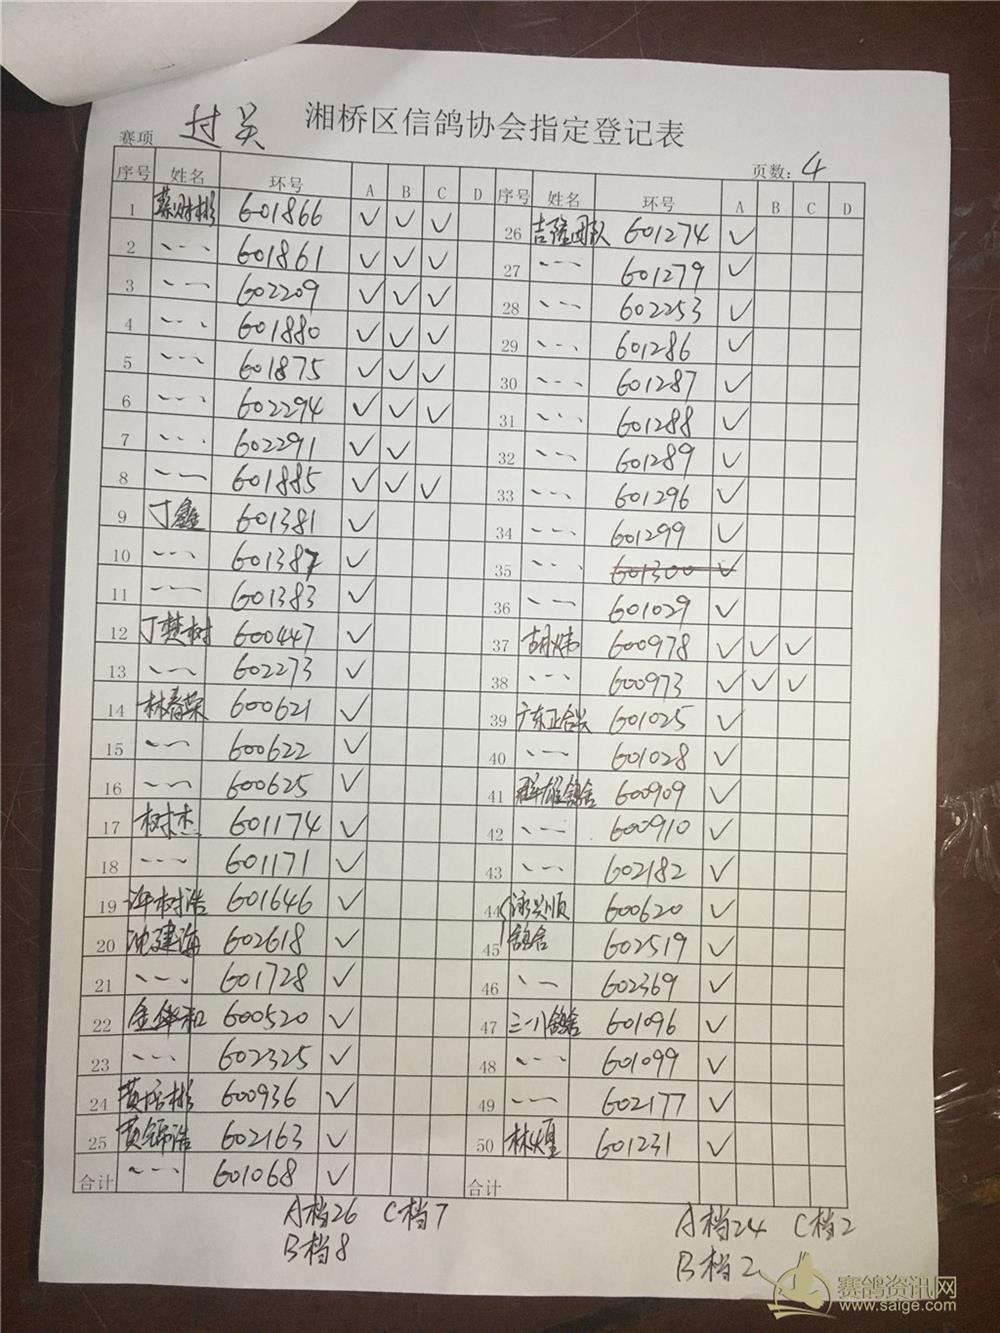 湘桥区信鸽协会指定登记表
赛项 过关 页数: 4
序号 姓名 环号 A B C D 序号 姓名 环号 A B C D
1 蔡财彬 601866 ✓ ✓ ✓ 26 吉隆团队 601274 ✓
2 601861 ✓ ✓ ✓ 27 601279 ✓
3 602209 ✓ ✓ ✓ 28 602253 ✓
4 601880 ✓ ✓ ✓ 29 601286 ✓
5 601875 ✓ ✓ ✓ 30 601287 ✓
6 602294 ✓ ✓ ✓ 31 601288 ✓
7 602291 ✓ ✓ 32 601289 ✓
8 601885 ✓ ✓ ✓ 33 601296 ✓
9 丁鑫 601381 ✓ 34 601299 ✓
10 601387 ✓ 35 601300 ✓
11 601383 ✓ 36 601029 ✓
12 丁楚树 600447 ✓ 37 胡炜 600978 ✓ ✓ ✓
13 602273 ✓ 38 600973 ✓ ✓ ✓
14 林春荣 600621 ✓ 39 广东正合兴 601025 ✓
15 600622 ✓ 40 601028 ✓
16 600625 ✓ 41 群雄鸽舍 600909 ✓
17 树杰 601174 ✓ 42 600910 ✓
18 601171 ✓ 43 602182 ✓
19 树浩 601646 ✓ 44 泳兴顺 600620 ✓
20 沈建海 602618 ✓ 45 鸽舍 602519 ✓
21 601728 ✓ 46 602369 ✓
22 金华和 600520 ✓ 47 三一八鸽舍 601096 ✓
23 602325 ✓ 48 601099 ✓
24 黄彬 600936 ✓ 49 602177 ✓
25 黄锦浩 602163 ✓ 50 林煌 601231 ✓
合计 601068 ✓ 合计
A档26 C档7 A档24 C档2
B档8 B档2
赛鸽资讯网
www.saige.com